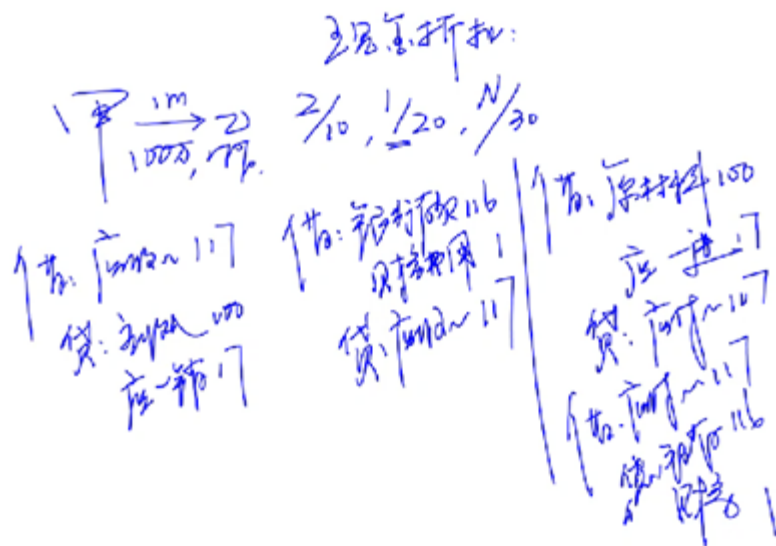 现金折扣:
甲 1m → 乙 2/10, 1/20, N/30
100万, 17%
借: 应收~ 117
贷: 主收入 100
应-销 17
借: 银行存款 116
财务费用 1
贷: 应收~ 117
借: 原材料 100
应-进 17
贷: 应付~ 117
借: 应付~ 117
贷: 银存 116
财务 1